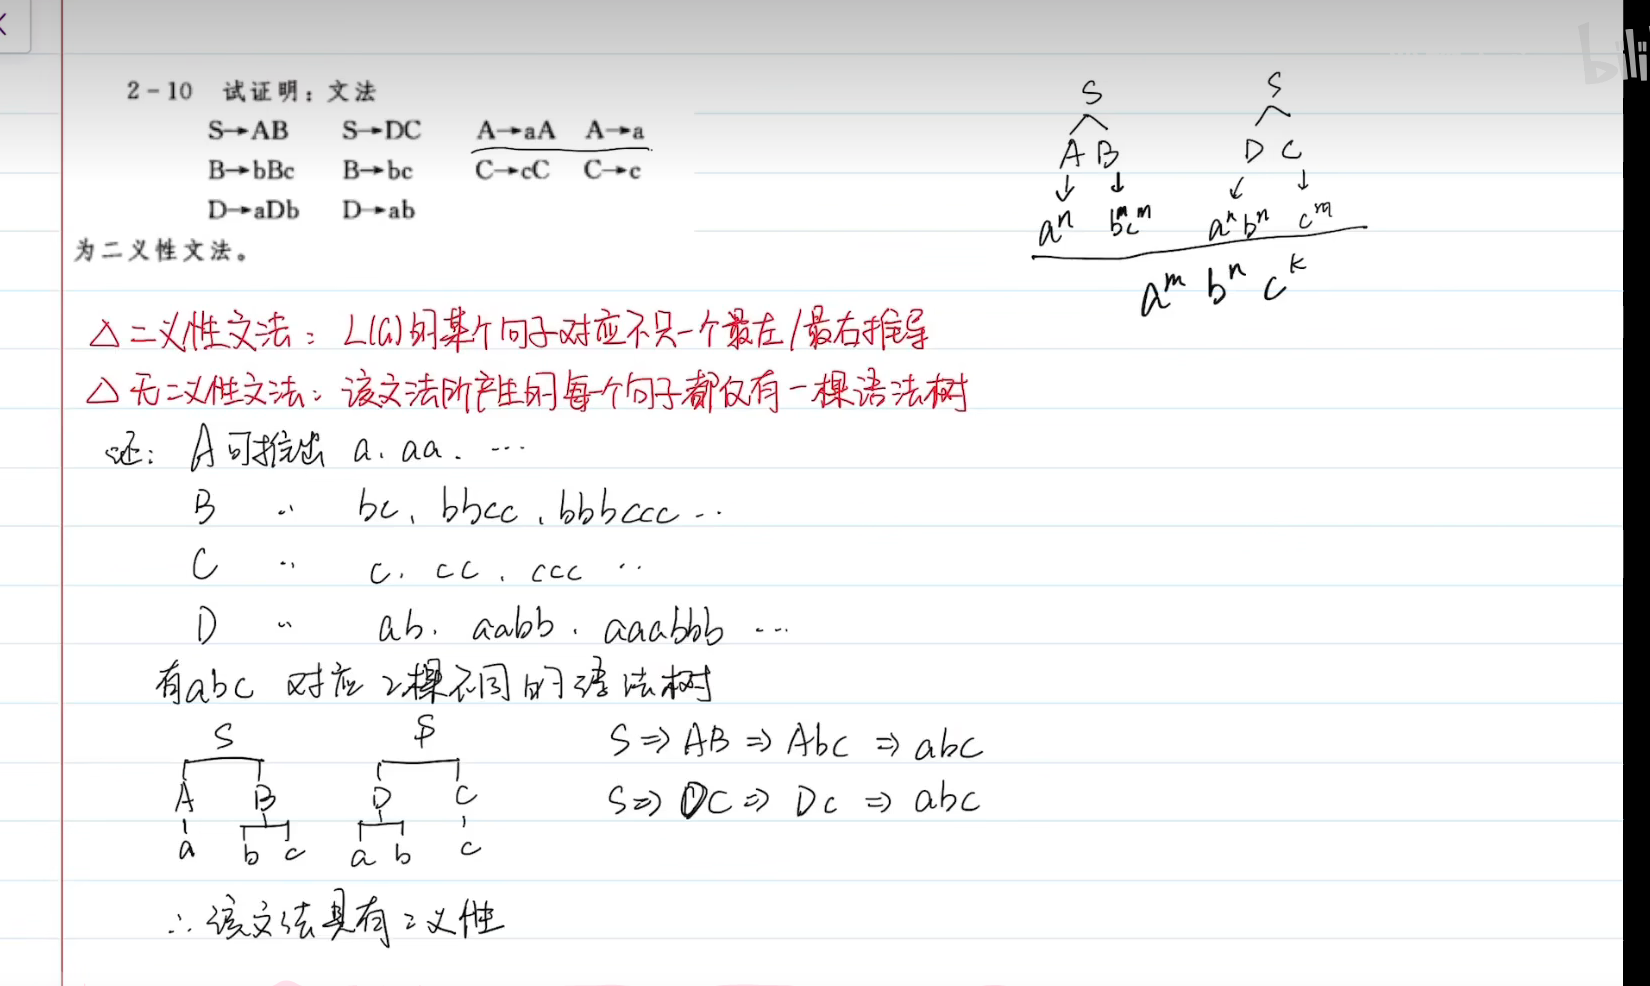 2-10 试证明：文法
S→AB S→DC A→aA A→a
B→bBc B→bc C→cC C→c
D→aDb D→ab
为二义性文法。
S
A B
↓ ↓
aⁿ bᵐcᵐ
S
D C
↙ ↓
aⁿbⁿ cᵐ
aᵐ bⁿ cᵏ
△ 二义性文法：L(G)的某个句子对应不只一个最左/最右推导
△ 无二义性文法：该文法所产生的每个句子都仅有一棵语法树
证： A可推出 a、aa、…
B 〃 bc、bbcc、bbbccc …
C 〃 c、cc、ccc …
D 〃 ab、aabb、aaabbb …
有abc 对应2棵不同的语法树
S
A B
a b c
S
D C
a b c
S⇒AB⇒Abc⇒abc
S⇒DC⇒Dc⇒abc
∴该文法具有二义性
bili